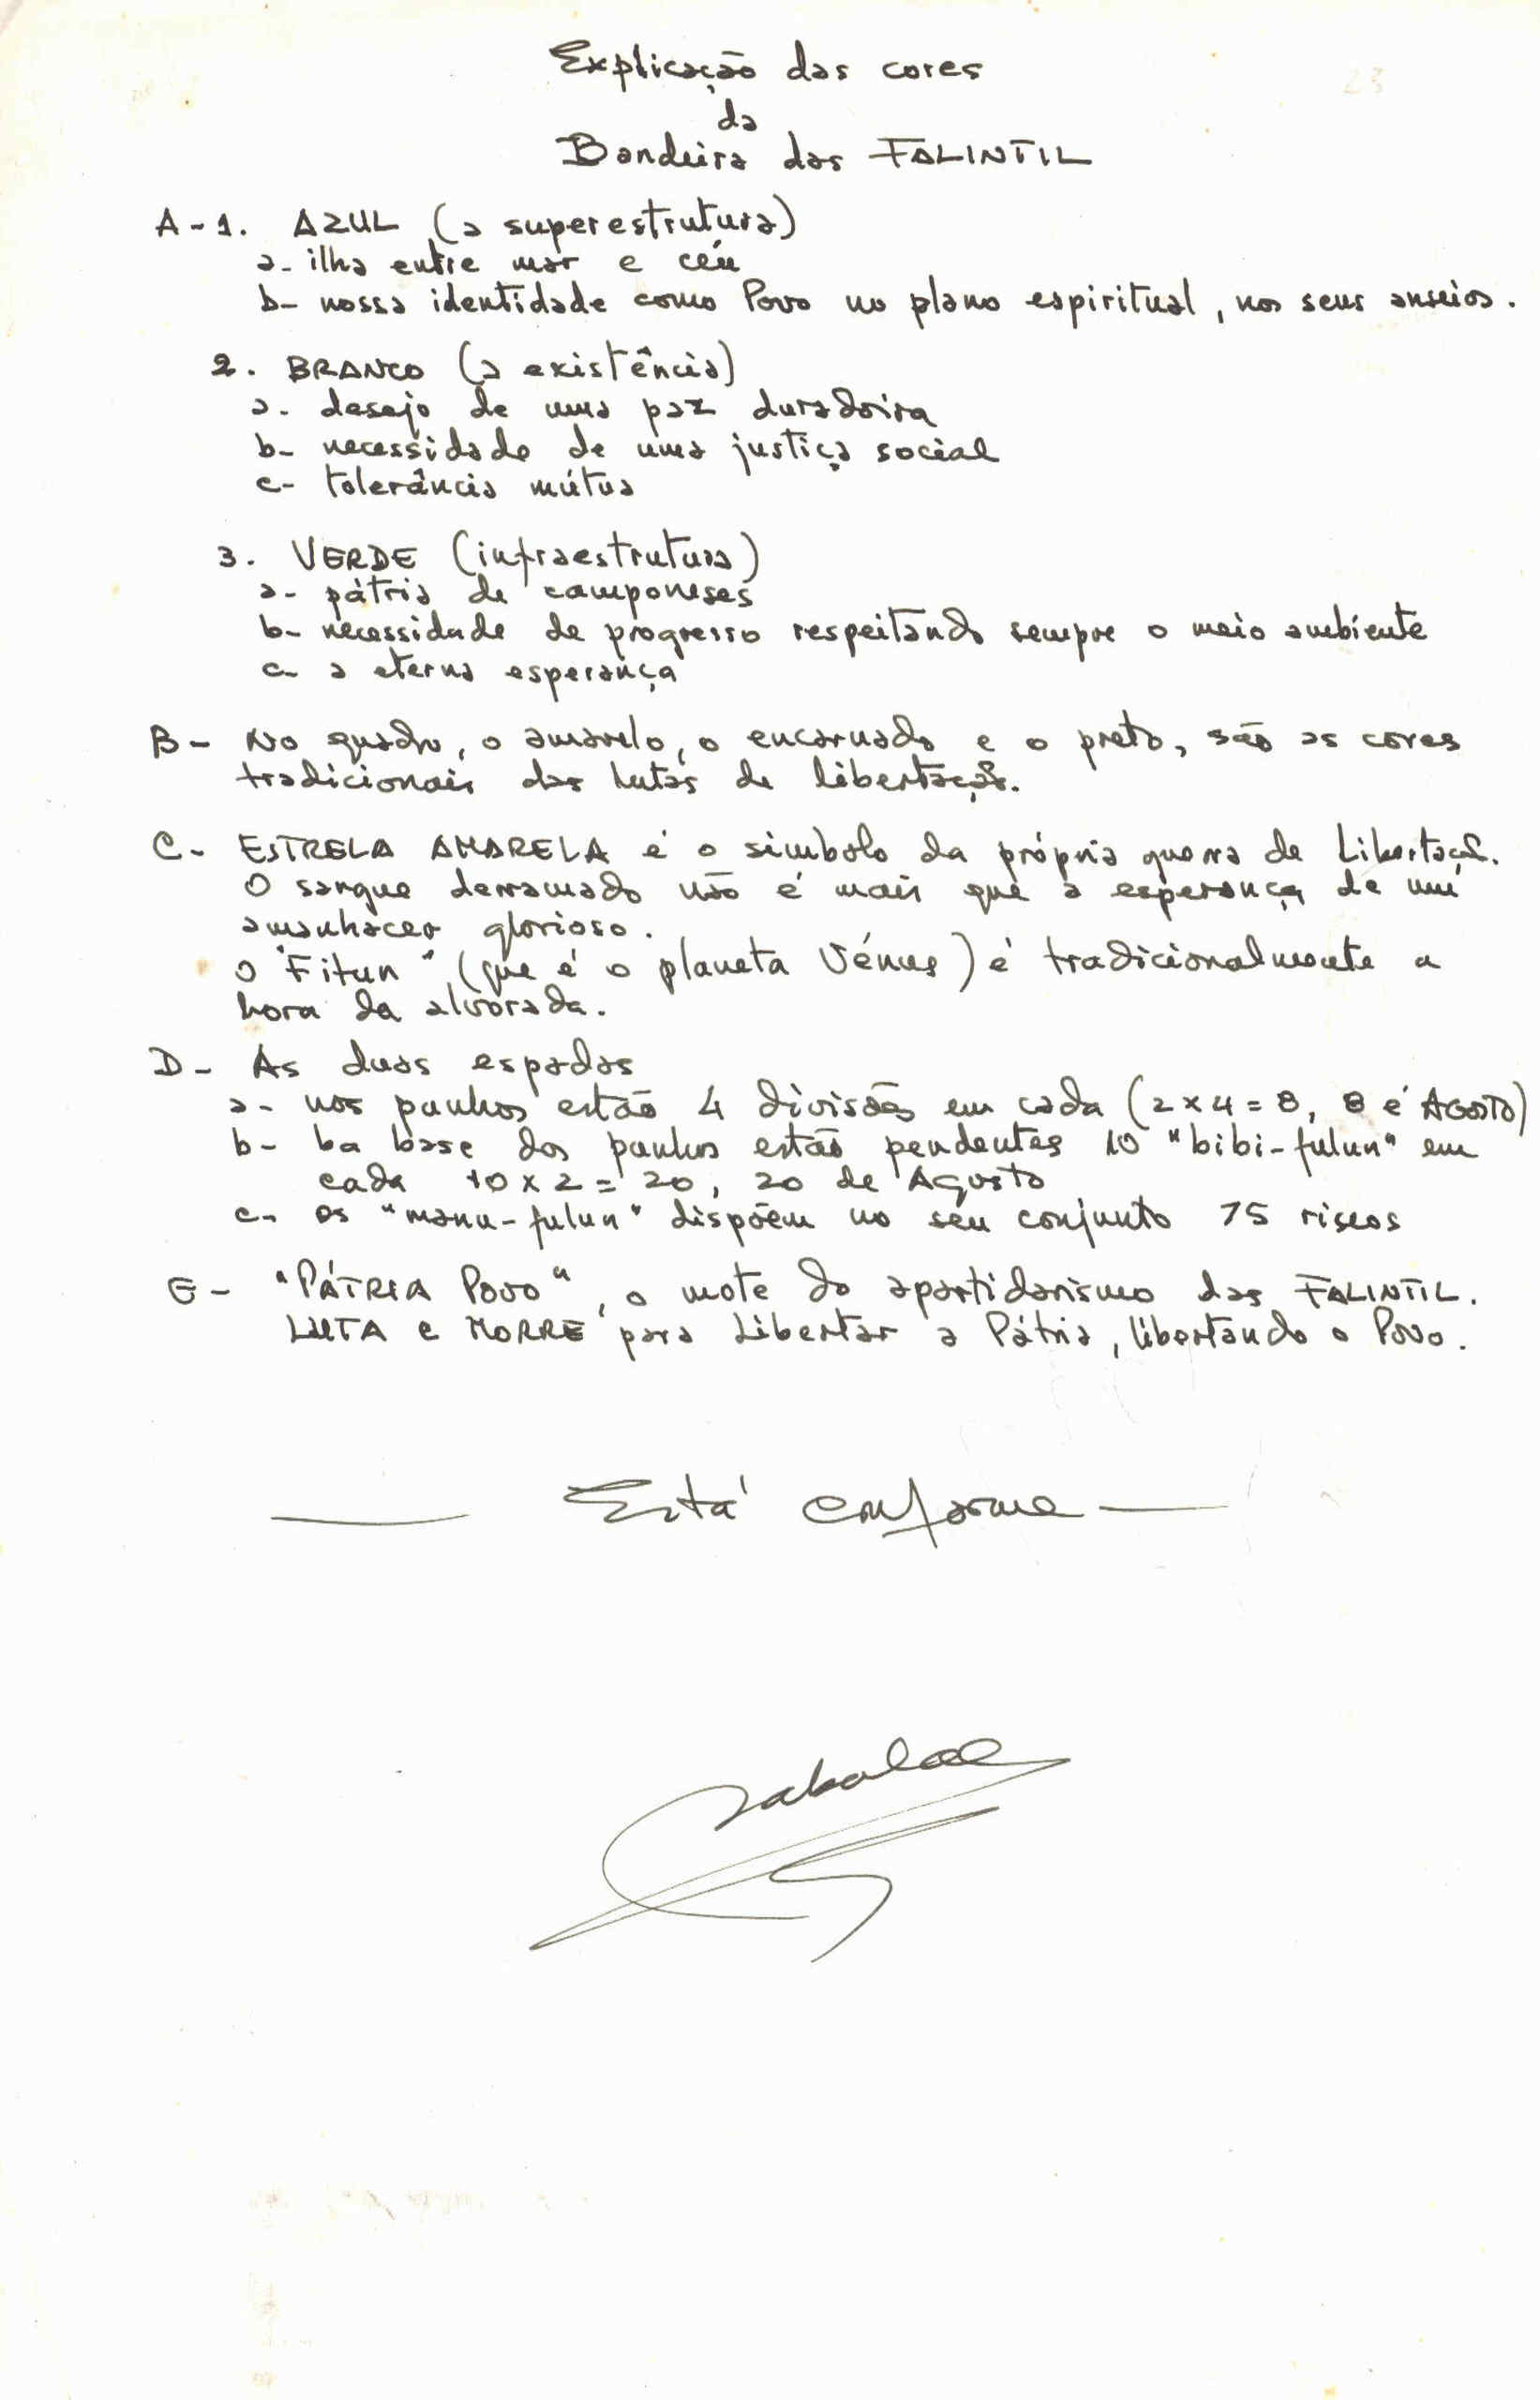 Explicação das cores
da
Bandeira das FALINTIL
A-1. AZUL (a superestrutura)
a- ilha entre mar e céu
b- nossa identidade como Povo no plano espiritual, nos seus anseios.
2. BRANCO (a existência)
a- desejo de uma paz duradoira
b- necessidade de uma justiça social
c- tolerância mútua
3. VERDE (infraestrutura)
a- pátria de camponeses
b- necessidade de progresso respeitando sempre o meio ambiente
c- a eterna esperança
B- No quadro, o amarelo, o encarnado e o preto, são as cores
tradicionais das lutas de libertação.
C- ESTRELA AMARELA é o simbolo da própria guerra de Libertação.
O sangue derramado não é mais que a esperança de um
amanhacer glorioso.
O "Fitun" (que é o planeta Vénus) é tradicionalmente a
hora da alvorada.
D- As duas espadas
a- nos punhos estão 4 divisões em cada (2x4=8, 8 é AGOSTO)
b- ba base dos punhos estão pendentes 10 "bibi-fulun" em
cada 10x2=20, 20 de Agosto
c- os "manu-fulun" dispõem no seu conjunto 75 riscos
E- "PÁTRIA POVO", o mote do apartidarismo das FALINTIL.
LUTA e MORRE para Libertar a Pátria, libertando o Povo.
Está conforme